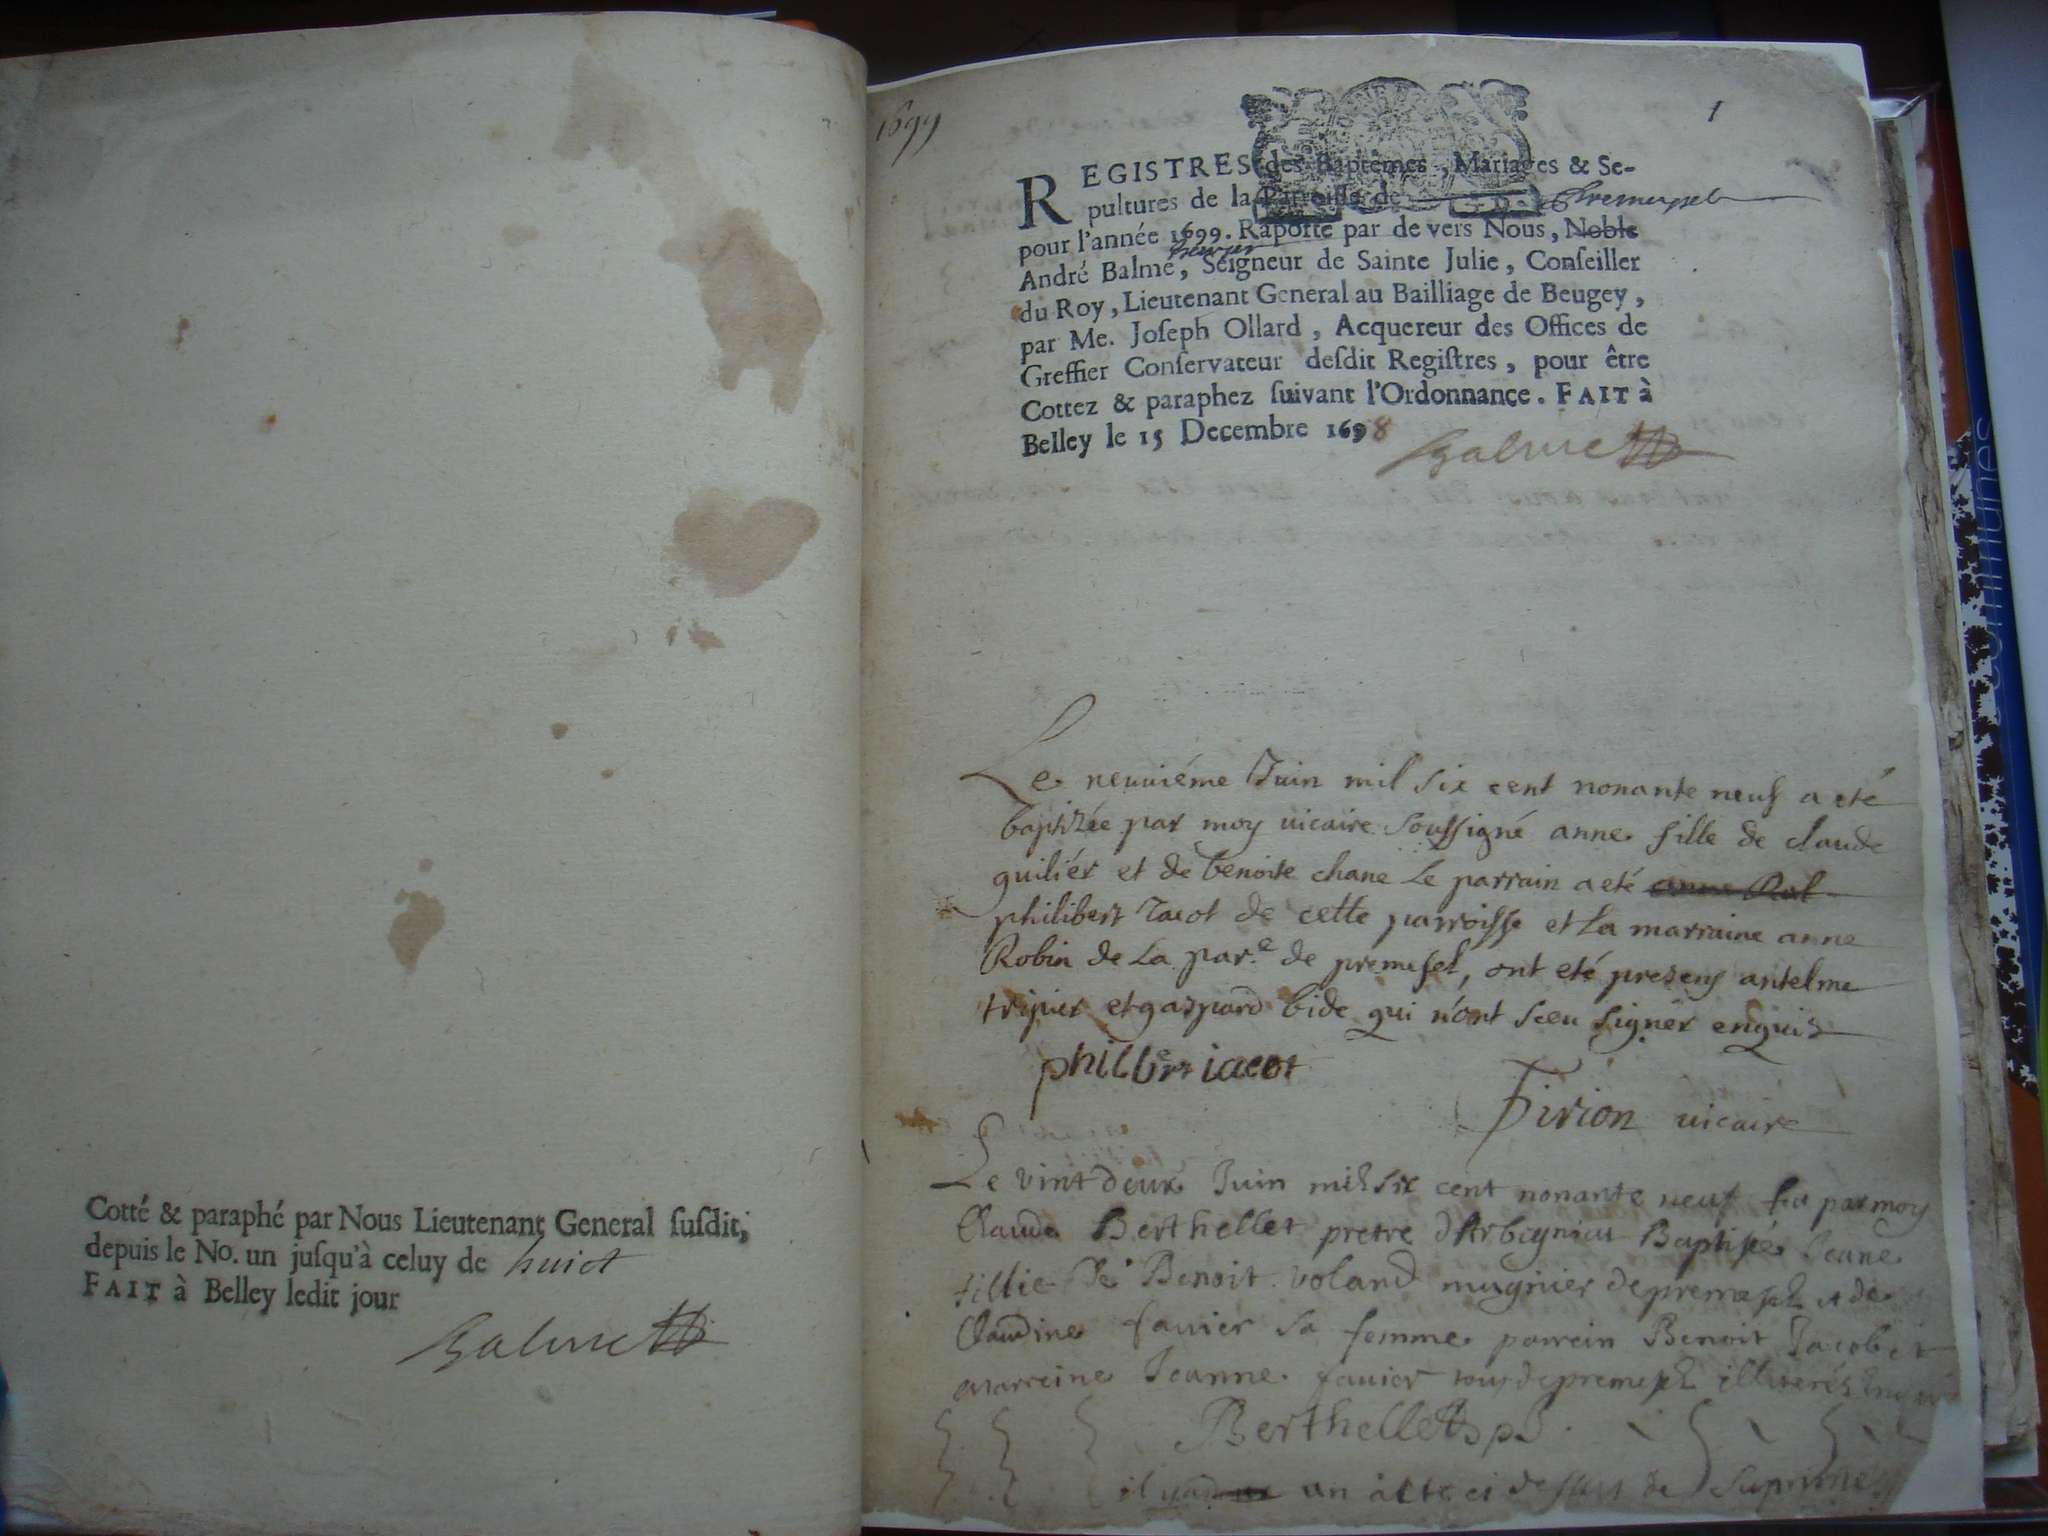 Cotté & paraphé par Nous Lieutenant General ſuſdit,
depuis le No. un juſqu'à celuy de huict
FAIT à Belley ledit jour
Balme
1699
1
REGISTRES des Baptêmes, Mariages & Se-
pultures de la Parroisse de
pour l'année 1699. Raporté par de vers Nous, Noble
André Balme, Seigneur de Sainte Julie, Conſeiller
du Roy, Lieutenant General au Bailliage de Beugey,
par Me. Joſeph Ollard, Acquereur des Offices de
Greffier Conſervateur deſdit Regiſtres, pour être
Cottez & paraphez ſuivant l'Ordonnance. FAIT à
Belley le 15 Decembre 1698
Balme
Le neuuiéme Juin mil six cent nonante neuf a eté
baptizée par moy uicaire soussigné anne fille de claude
guiliér et de benoite chane Le parrain a eté
philibert Jacot de cette parroisse et La marraine anne
Robin de La par.e de premesel, ont eté presens antelme
tripier et gaspard bide qui n'ont sceu signer enquis
philibert iacot
Tirion uicaire
Le vint deux Juin mil six cent nonante neuf fut par moy
Claude Berthellet pretre d'Arbigniat Baptisée Jeane
fillie de Benoit voland mugnier de premesel et de
Claudine fauier sa femme parrein Benoit Jacob et
marreine Jeanne fauier tous de premesel illiterés
Berthellet
un acte ci dessus de suprimé
communes